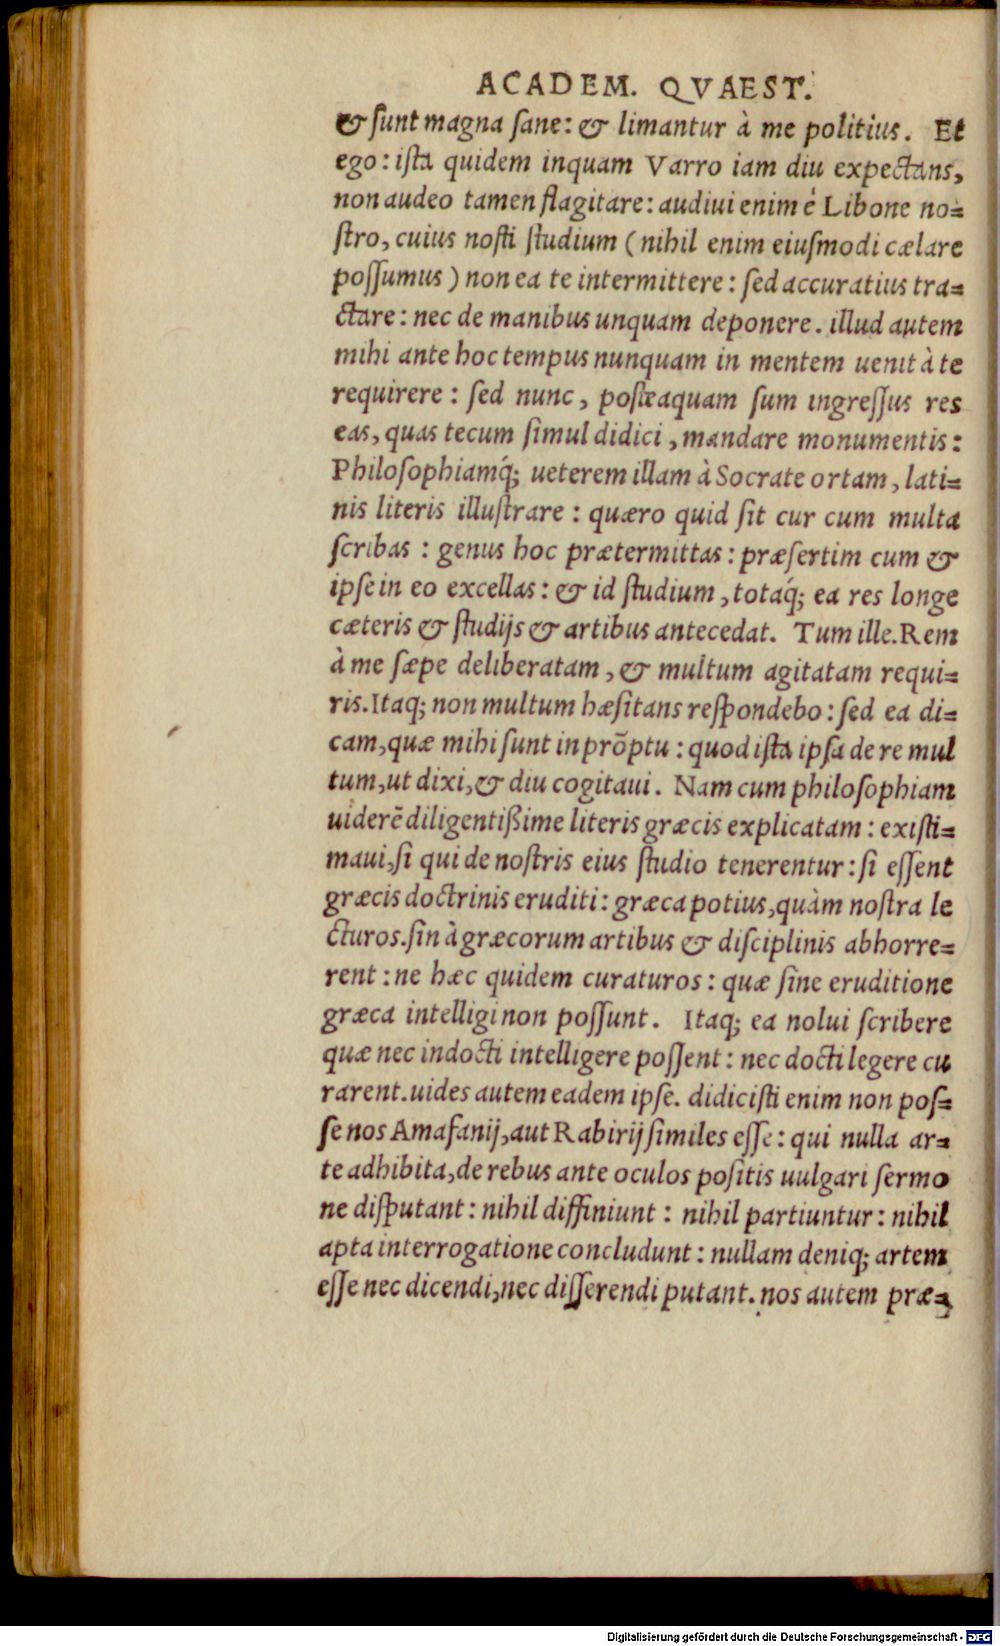 ACADEM. QVAEST.
& ſunt magna ſane: & limantur à me politius. Et
ego: iſta quidem inquam Varro iam diu expectans,
non audeo tamen flagitare: audiui enim è Libone no=
ſtro, cuius noſti ſtudium (nihil enim eiuſmodi cælare
poſſumus) non ea te intermittere: ſed accuratius tra=
ctare: nec de manibus unquam deponere. illud autem
mihi ante hoc tempus nunquam in mentem uenit à te
requirere: ſed nunc, poſteaquam ſum ingreſſus res
eas, quas tecum ſimul didici, mandare monumentis:
Philoſophiamq́; ueterem illam à Socrate ortam, lati=
nis literis illuſtrare: quæro quid ſit cur cum multa
ſcribas: genus hoc prætermittas: præſertim cum &
ipſe in eo excellas: & id ſtudium, totaq́; ea res longe
cæteris & ſtudijs & artibus antecedat. Tum ille. Rem
à me ſæpe deliberatam, & multum agitatam requi=
ris. Itaq; non multum hæſitans reſpondebo: ſed ea di=
cam, quæ mihi ſunt in prõptu: quod iſta ipſa de re mul
tum, ut dixi, & diu cogitaui. Nam cum philoſophiam
uiderẽ diligentiſſime literis græcis explicatam: exiſti=
maui, ſi qui de noſtris eius ſtudio tenerentur: ſi eſſent
græcis doctrinis eruditi: græca potius, quàm noſtra le
cturos. ſin à græcorum artibus & diſciplinis abhorre=
rent: ne hæc quidem curaturos: quæ ſine eruditione
græca intelligi non poſſunt. Itaq; ea nolui ſcribere
quæ nec indocti intelligere poſſent: nec docti legere cu
rarent. uides autem eadem ipſe. didiciſti enim non poſ=
ſe nos Amafanij, aut Rabirij ſimiles eſſe: qui nulla ar=
te adhibita, de rebus ante oculos poſitis uulgari ſermo
ne diſputant: nihil diffiniunt: nihil partiuntur: nihil
apta interrogatione concludunt: nullam deniq; artem
eſſe nec dicendi, nec diſſerendi putant. nos autem præ=
Digitalisierung gefördert durch die Deutsche Forschungsgemeinschaft - DFG